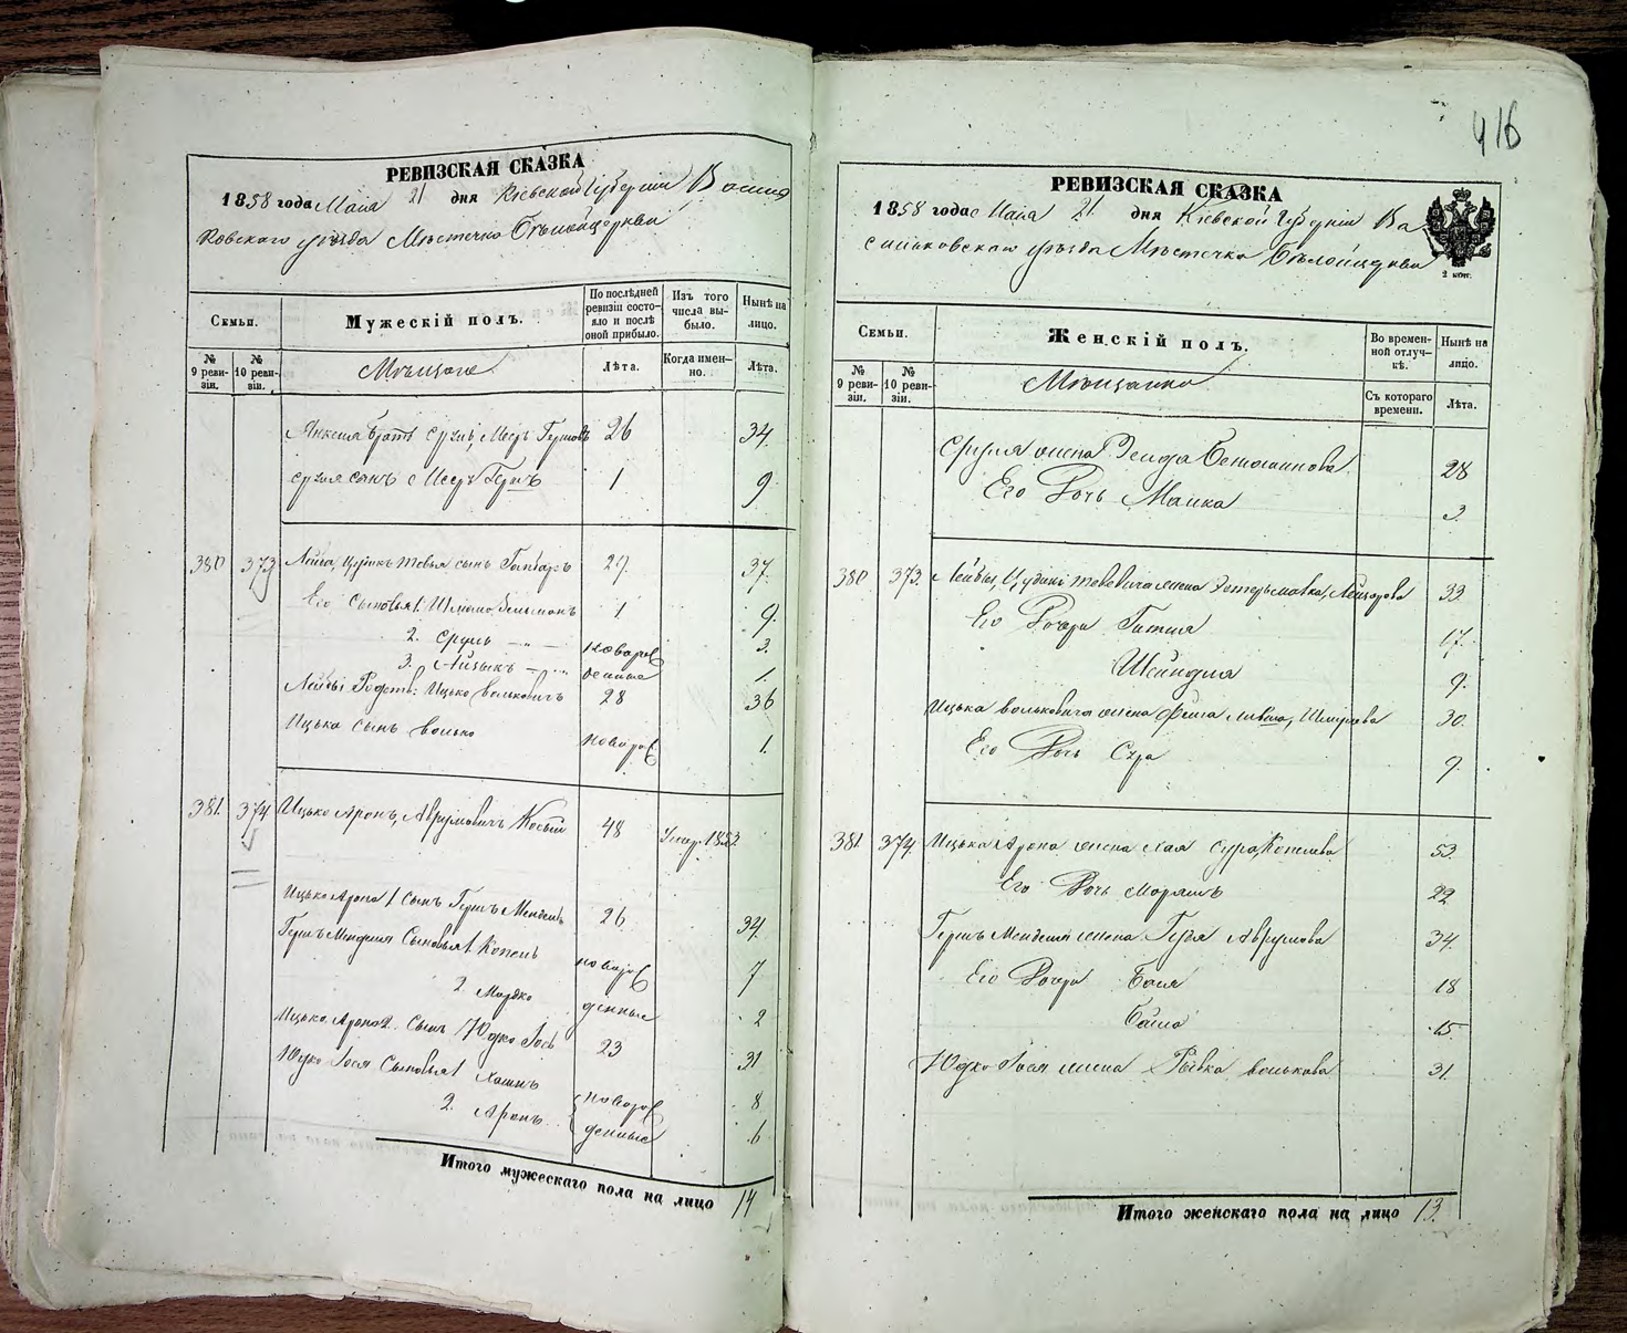 416
РЕВИЗСКАЯ СКАЗКА
1858 года Маія 21 дня Кіевской Губерніи Василь
ковскаго уѣзда Мѣстечка Бѣлойцеркви
Семьи.
Мужескій полъ.
По послѣдней ревизіи состо-
яло и послѣ оной прибыло.
Изъ того числа вы-
было.
Нынѣ на лицо.
№ 9 реви-
зіи.
№ 10 реви-
зіи.
Мѣщане
Лѣта.
Когда имен-
но.
Лѣта.
братъ Сруль, Меер 26 34.
Сруля сынъ Меер Гершъ 1 9.
380 373 Лейба, Цудикъ Товья сынъ 29. 37.
Его Сыновья 1. Шлиомо Зельманъ 1 9.
2. Сруль — " — новорож 3.
3. Айзыкъ — " — денные 1.
Лейбы Родств: Ицько Вольковичъ 28 36
Ицька сынъ Волько новорож 1.
381. 374 Ицько Аронъ, Аврумовичъ 48 Умер. 1853.
Ицько Арона 1 Сынъ Гершъ Мендель 26 34.
Гершъ Менделя Сыновья 1. Копель новорож 7
2. Мордко денные 2
Ицько Арона 2. Сынъ Юдко Іось 23 31
Юдко Іося Сыновья 1 Хаимъ новорож 8
2. Аронъ денные 6
Итого мужескаго пола на лицо 14
РЕВИЗСКАЯ СКАЗКА
1858 года Маія 21. дня Кіевской Губерніи Ва
сильковскаго уѣзда Мѣстечка Бѣлойцеркви
2 коп.
Семьи.
Женскій полъ.
Во времен-
ной отлуч-
кѣ.
Нынѣ на лицо.
№ 9 реви-
зіи.
№ 10 реви-
зіи.
Мѣщанки
Съ котораго времени.
Лѣта.
Сруля жена 28
Его Дочь Малка 3.
380 373. Лейбы, Цудика Тевевича жена Эстеръ Малка, Лейзорова 33.
Его Дочери Гитля 17.
Шейндля 9.
Ицька Вольковича жена Фейга Ливша, Шмулева 30.
Его Дочь Сура 9.
381. 374. Ицька Арона жена Хая Сура, Копелева 53.
Его Дочь Маріямъ 22
Гершъ Менделя жена Аврумова 34.
Его Дочери Бася 18
15.
Юдко Іося жена Ривка Волькова 31.
Итого женскаго пола на лицо 13.